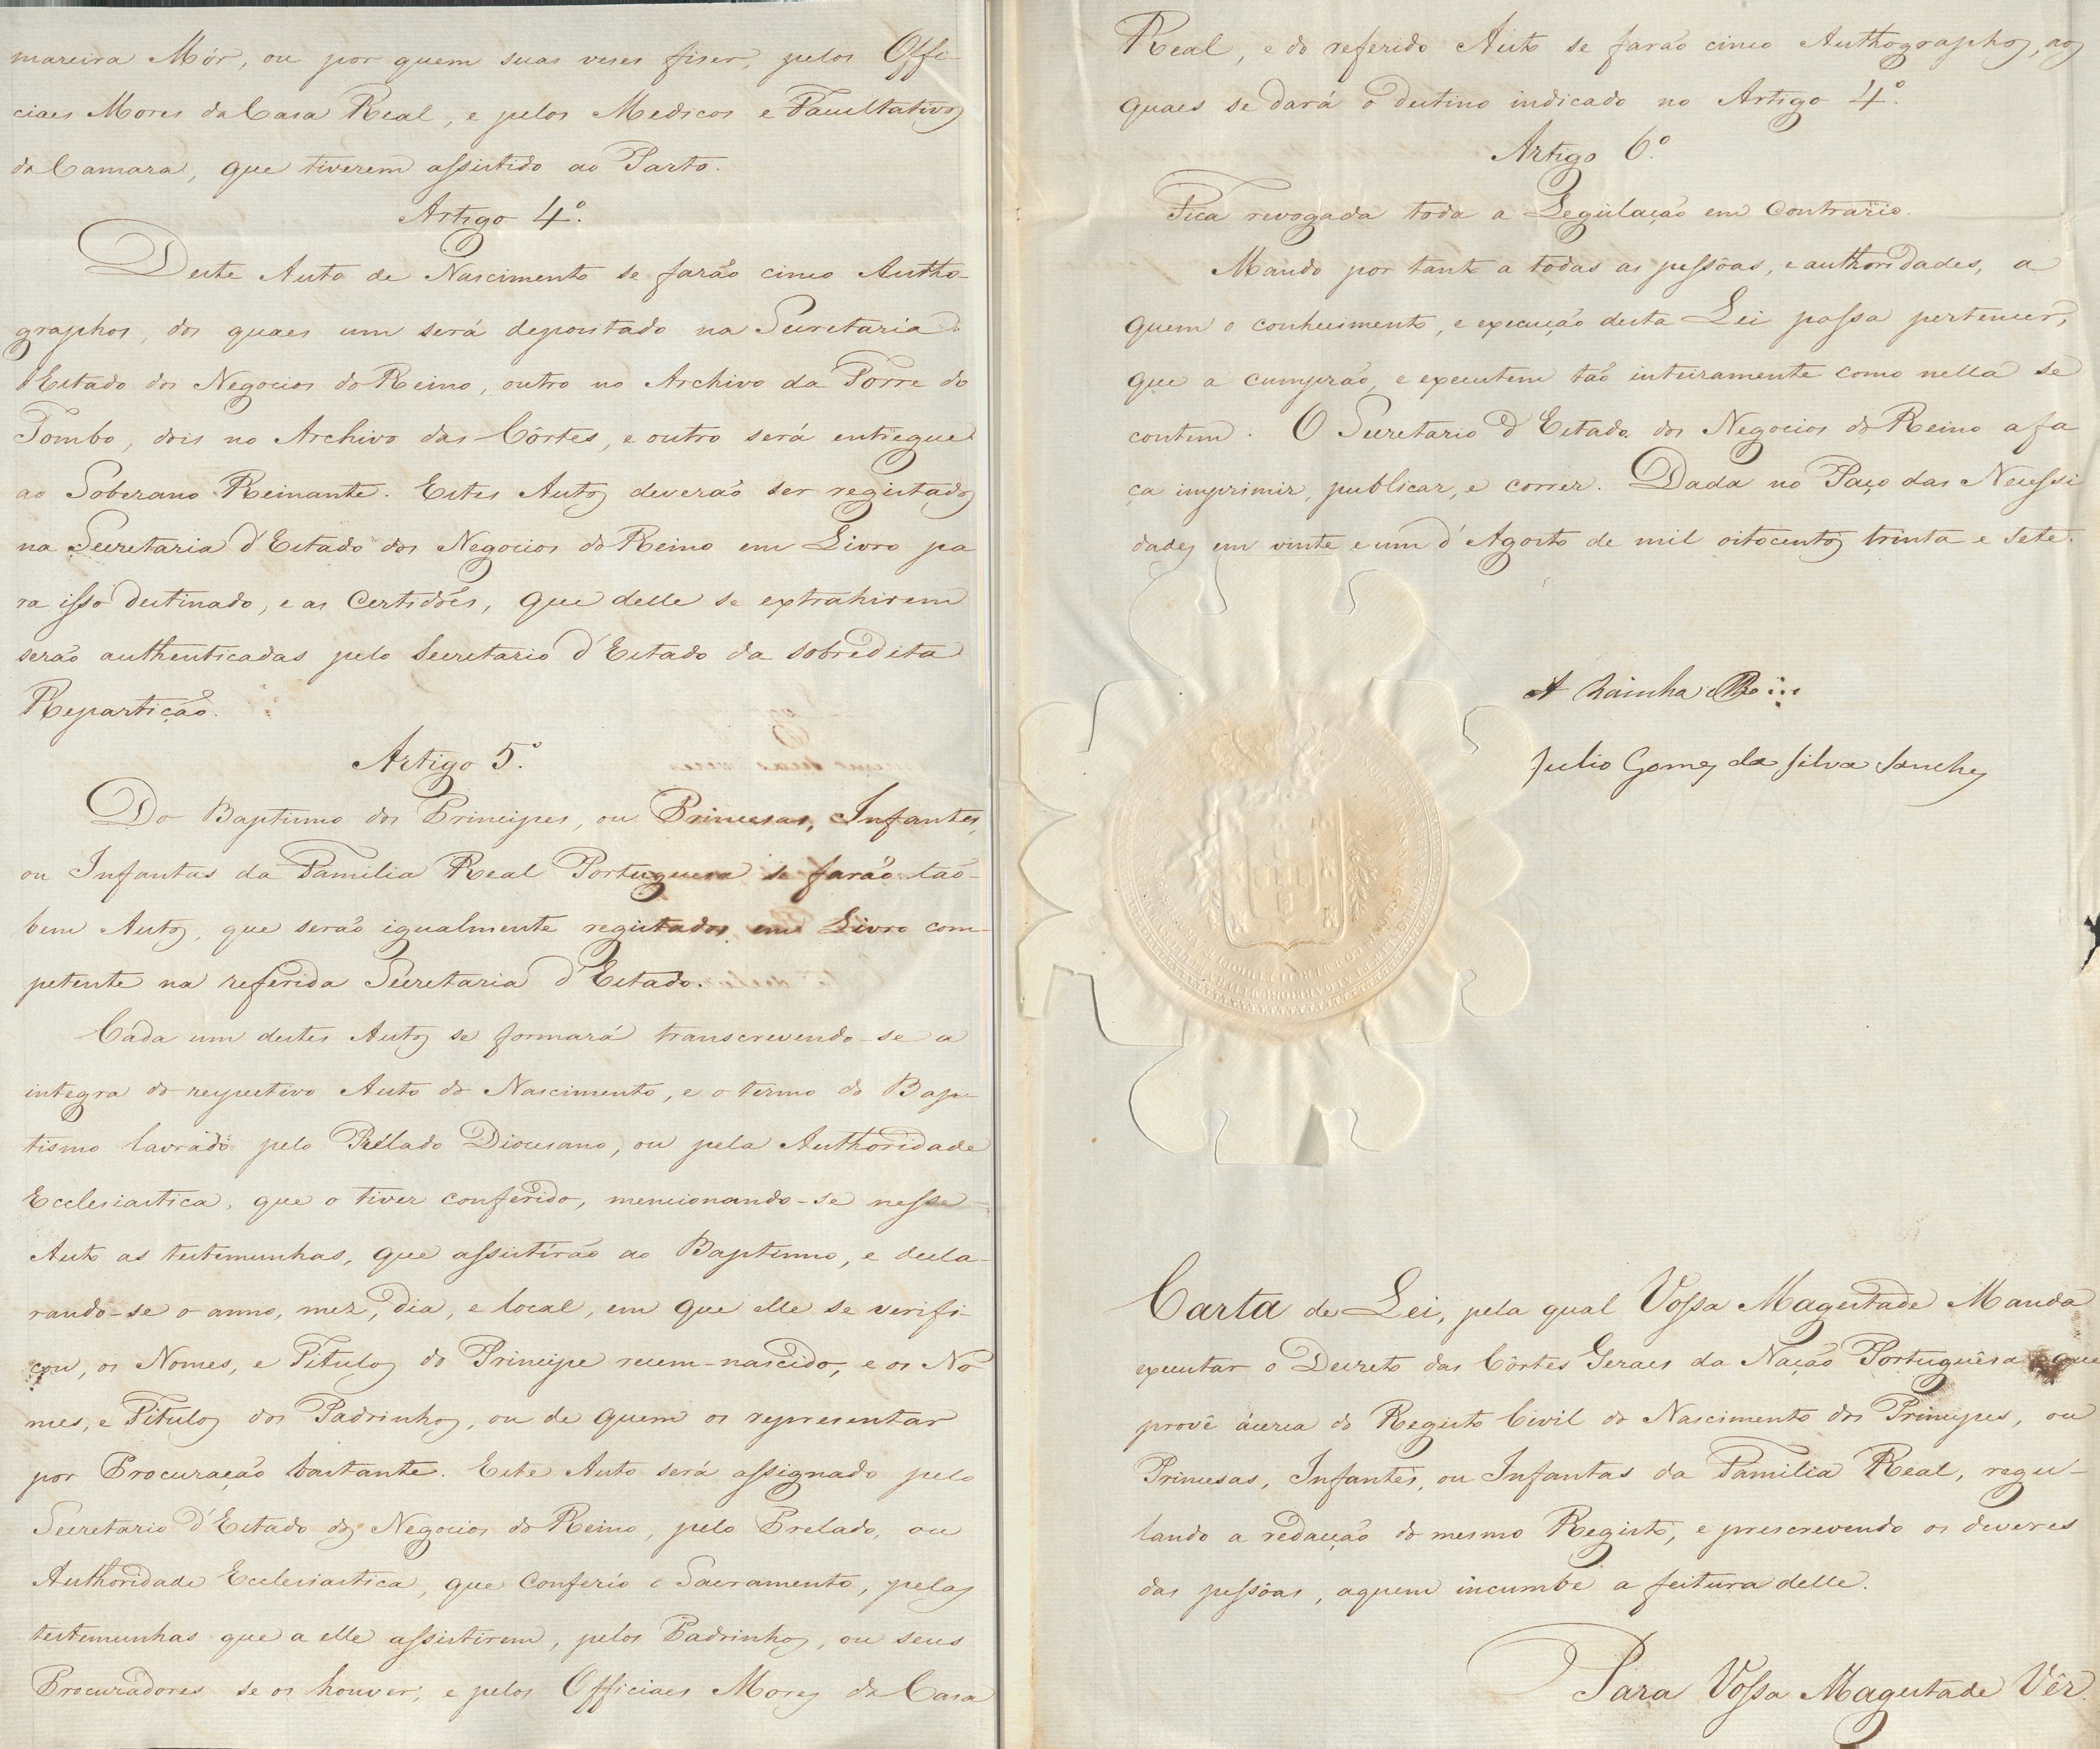 mareira Mór, ou por quem suas veses fiser, pelos Offi-
ciaes Mores da Casa Real, e pelos Medicos e Facultativos
da Camara, que tiverem assistido ao Parto.
Artigo 4º.
Deste Auto de Nascimento se farão cinco Autho-
graphos, dos quaes um será depositado na Secretaria
d'Estado dos Negocios do Reino, outro no Archivo da Torre do
Tombo, dois no Archivo das Côrtes, e outro será entregue
ao Soberano Reinante. Estes Autos deverão ser registados
na Secretaria d'Estado dos Negocios do Reino em Livro pa
ra isso destinado, e as Certidões, que delle se extrahirem
serão authenticadas pelo Secretario d'Estado da sobredita
Repartição.
Artigo 5º.
Do Baptismo dos Principes, ou Princesas, Infantes,
ou Infantas da Familia Real Portuguesa se farão tão-
bem Autos, que serão igualmente registados em Livro com-
petente na referida Secretaria d'Estado.
Cada um destes Autos se formará transcrevendo-se a
integra do respectivo Auto do Nascimento, e o termo do Bap-
tismo lavrado pelo Prélado Diocesano, ou pela Authoridade
Ecclesiastica, que o tiver conferido, mencionando-se nesse
Auto as testemunhas, que assistirão ao Baptismo, e decla-
rando-se o anno, mez, dia, e local, em que elle se verifi-
cou, os Nomes, e Titulos do Principe recem-nascido, e os No-
mes, e Titulos dos Padrinhos, ou de quem os representar
por Procuração bastante. Este Auto será assignado pelo
Secretario d'Estado dos Negocios do Reino, pelo Prelado, ou
Authoridade Ecclesiastica, que conferio o Sacramento, pelas
testemunhas que a elle assistirem, pelos Padrinhos, ou seus
Procuradores se os houver, e pelos Officiaes Mores da Casa
Real, e do referido Auto se farão cinco Authographos, aos
quaes se dará o destino indicado no Artigo 4º.
Artigo 6º.
Fica revogada toda a Legislação em contrario.
Mando por tanto a todas as pessôas, e authoridades, a
quem o conhecimento, e execução desta Lei possa pertencer,
que a cumprão, e executem tão inteiramente como nella se
contem. O Secretario d'Estado dos Negocios do Reino a fa
ça imprimir, publicar, e correr. Dada no Paço das Necessi
dades em vinte e um d'Agosto de mil oitocentos trinta e sete.
A Rainha
Julio Gomes da Silva Sanches
Carta de Lei, pela qual Vossa Magestade Manda
executar o Decreto das Côrtes Geraes da Nação Portuguêsa que
provê ácerca do Registo Civil do Nascimento dos Principes, ou
Princesas, Infantes, ou Infantas da Familia Real, regu-
lando a redacção do mesmo Registo, e prescrevendo os deveres
das pessôas, aquem incumbe a feitura delle.
Para Vossa Magestade Vêr.